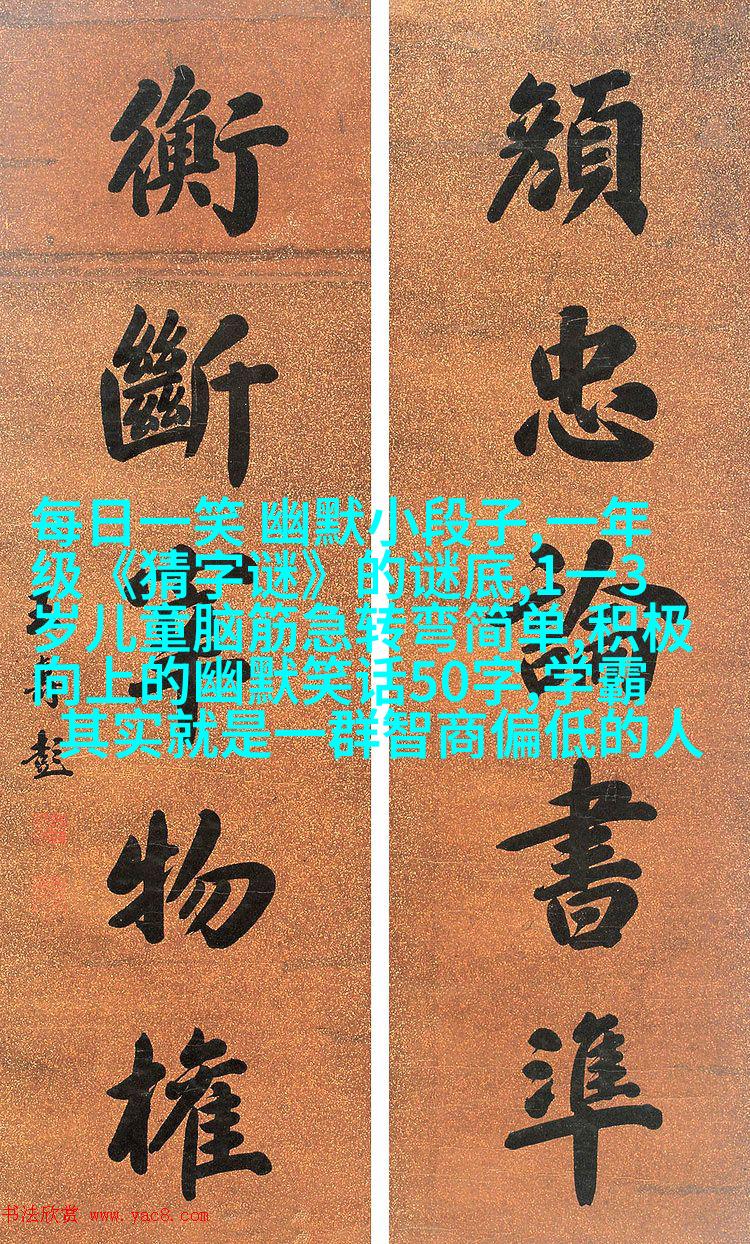 忠論書準
衡斷物權
每日一笑 幽默小段子,一年
级《猜字谜》的谜底,1一3
岁儿童脑筋急转弯简单,积极
向上的幽默笑话50字,学霸
其实就是一群智商偏低的人
书法欣赏 www.yac8.com